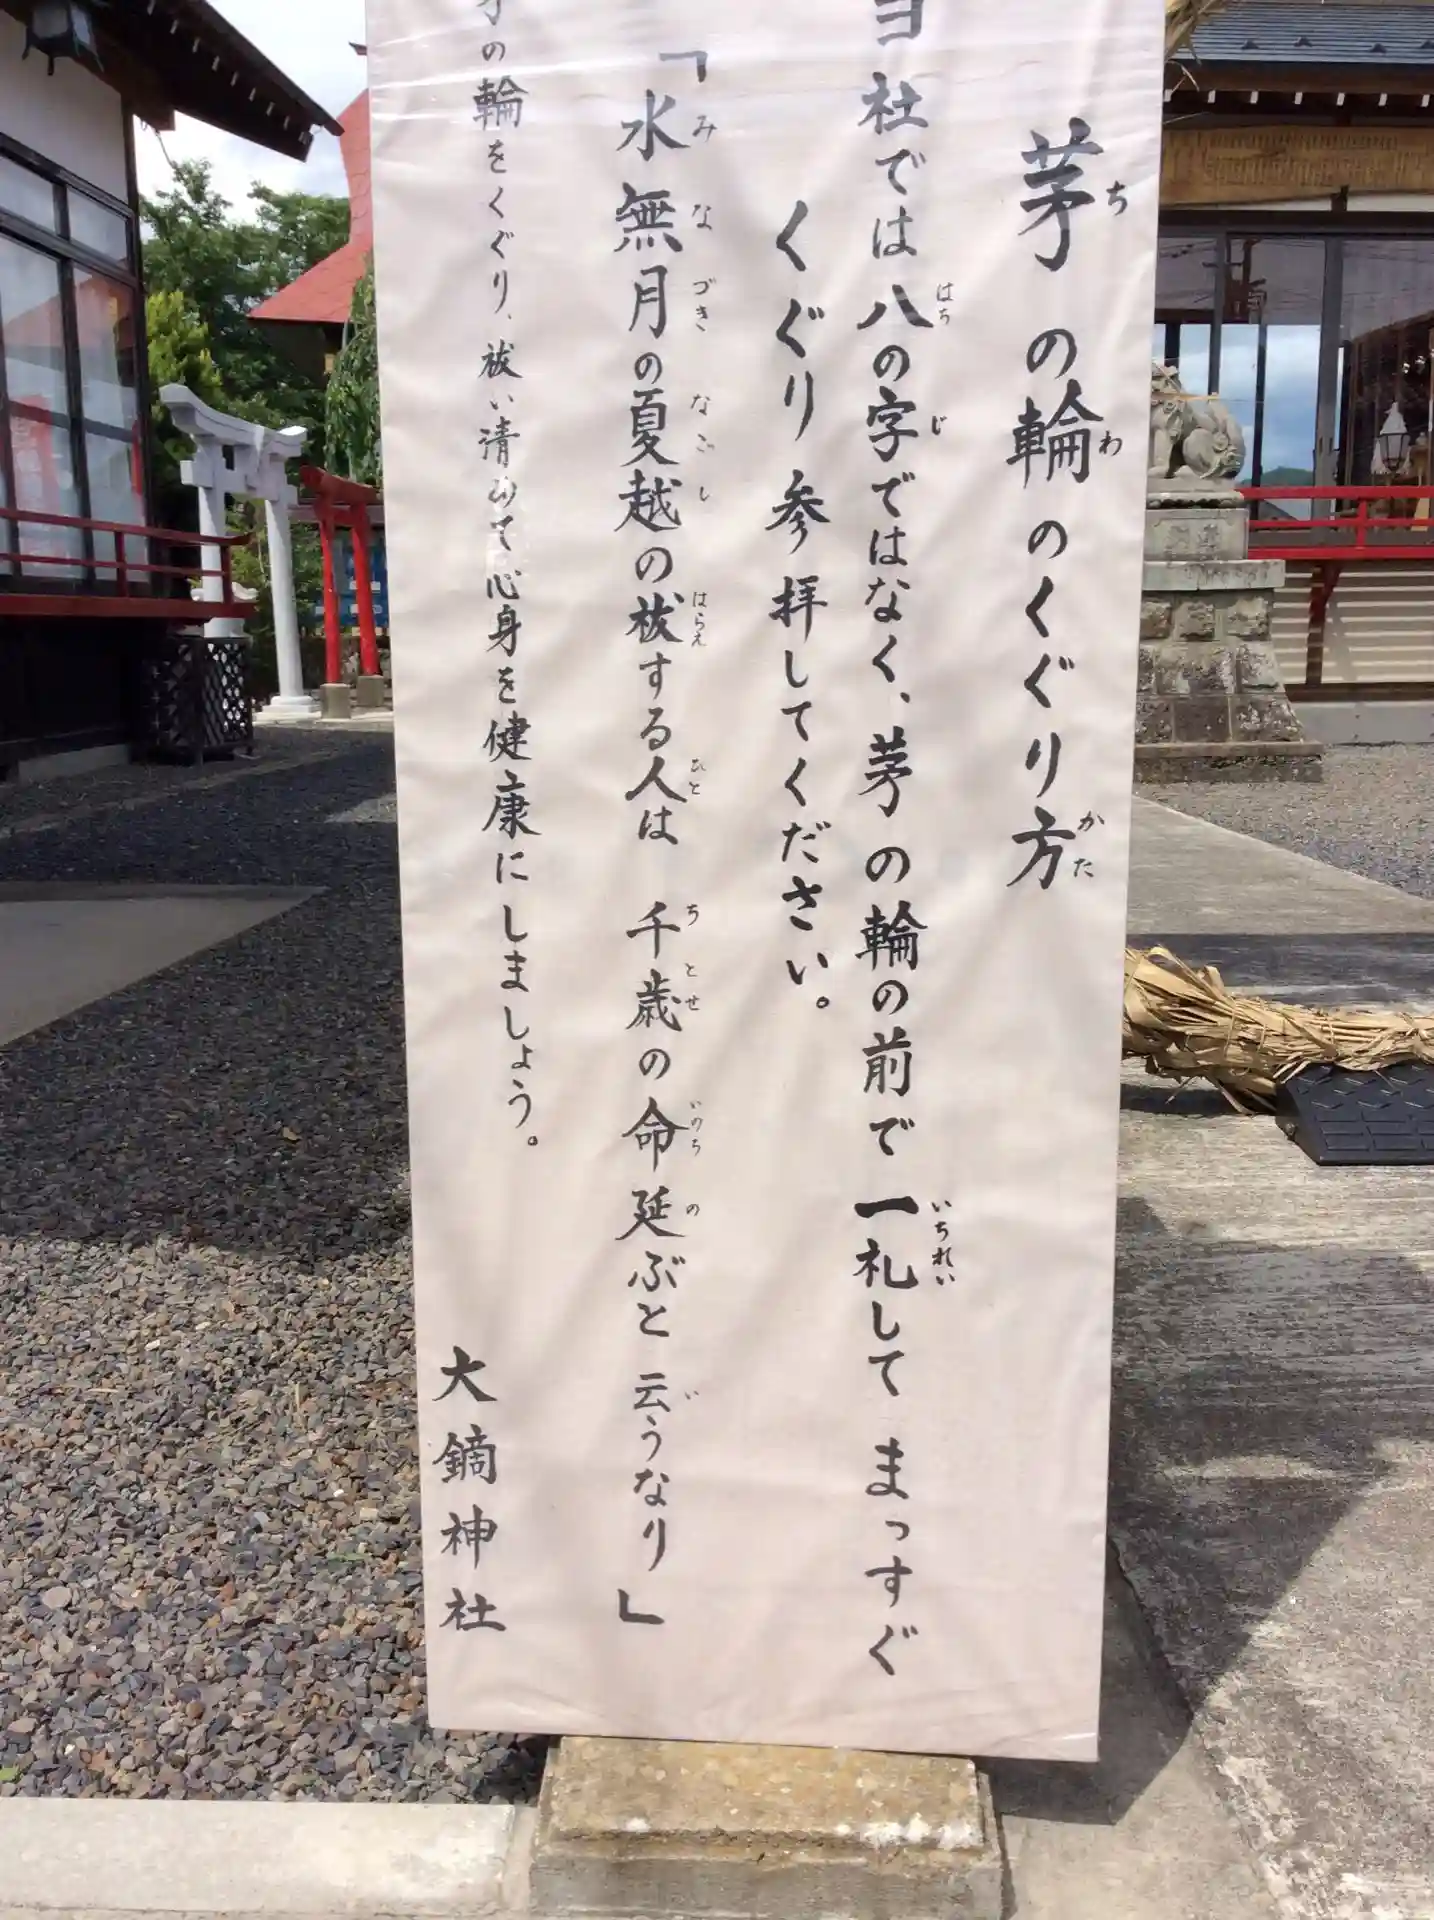 茅の輪のくぐり方
社では八の字ではなく、茅の輪の前で一礼してまっすぐ
くぐり参拝してください。
「水無月の夏越の祓する人は 千歳の命延ぶと云うなり」
の輪をくぐり、祓い清めて心身を健康にしましょう。
大鏑神社